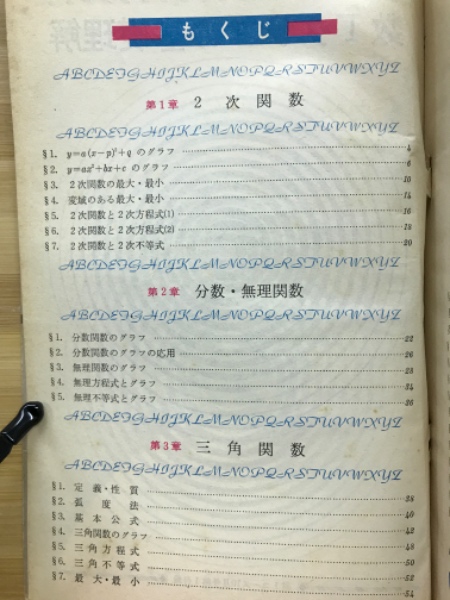 もくじ
ABCDEFGHIJKLMNOPQRSTUVWXYZ
第1章 2次関数
ABCDEFGHIJKLMNOPQRSTUVWXYZ
§1. y=a(x−p)²+q のグラフ 4
§2. y=ax²+bx+c のグラフ 6
§3. 2次関数の最大・最小 10
§4. 変域のある最大・最小 14
§5. 2次関数と2次方程式(1) 16
§6. 2次関数と2次方程式(2) 18
§7. 2次関数と2次不等式 20
ABCDEFGHIJKLMNOPQRSTUVWXYZ
第2章 分数・無理関数
ABCDEFGHIJKLMNOPQRSTUVWXYZ
§1. 分数関数のグラフ 22
§2. 分数関数のグラフの応用 26
§3. 無理関数のグラフ 28
§4. 無理方程式とグラフ 34
§5. 無理不等式とグラフ 36
ABCDEFGHIJKLMNOPQRSTUVWXYZ
第3章 三角関数
ABCDEFGHIJKLMNOPQRSTUVWXYZ
§1. 定義・性質 38
§2. 弧度法 40
§3. 基本公式 42
§4. 三角関数のグラフ 48
§5. 三角方程式 50
§6. 三角不等式 52
§7. 最大・最小 54